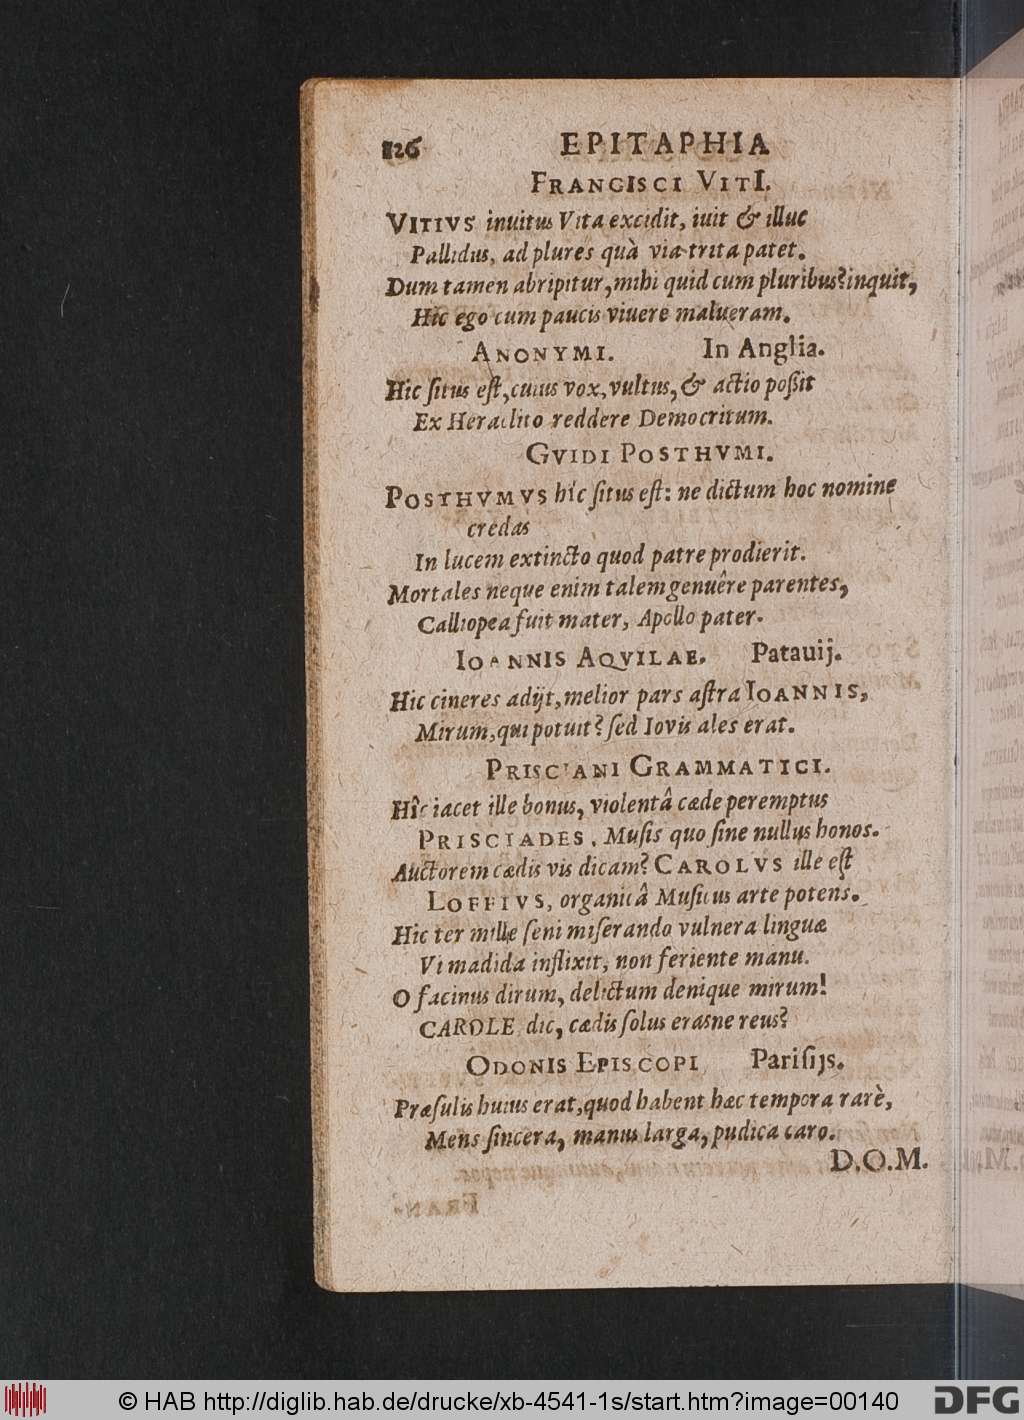 126 EPITAPHIA
FRANCISCI VITI.
VITIVS inuitus Vita excidit, iuit & illuc
Pallidus, ad plures quà via trita patet.
Dum tamen abripitur, mihi quid cum pluribus? inquit,
Hic ego cum paucis viuere malueram.
ANONYMI. In Anglia.
Hic ſitus eſt, cuius vox, vultus, & actio poßit
Ex Heraclito reddere Democritum.
GVIDI POSTHVMI.
POSTHVMVS hîc ſitus eſt: ne dictum hoc nomine
credas
In lucem extincto quod patre prodierit.
Mortales neque enim talem genuêre parentes,
Calliopea fuit mater, Apollo pater.
IOANNIS AQVILAE. Patauij.
Hic cineres adijt, melior pars aſtra IOANNIS,
Mirum, qui potuit? ſed Iovis ales erat.
PRISCIANI GRAMMATICI.
Hîc iacet ille bonus, violentâ cæde peremptus
PRISCIADES. Muſis quo ſine nullus honos.
Auctorem cædis vis dicam? CAROLVS ille eſt
LOFFIVS, organicâ Muſicus arte potens.
Hic ter mille ſeni miſerando vulnera linguæ
Vi madida inflixit, non feriente manu.
O facinus dirum, delictum denique mirum!
CAROLE dic, cædis ſolus erasne reus?
ODONIS EPISCOPI Pariſijs.
Præſulis huius erat, quod habent hæc tempora rarè,
Mens ſincera, manus larga, pudica caro.
D.O.M.
© HAB http://diglib.hab.de/drucke/xb-4541-1s/start.htm?image=00140 DFG